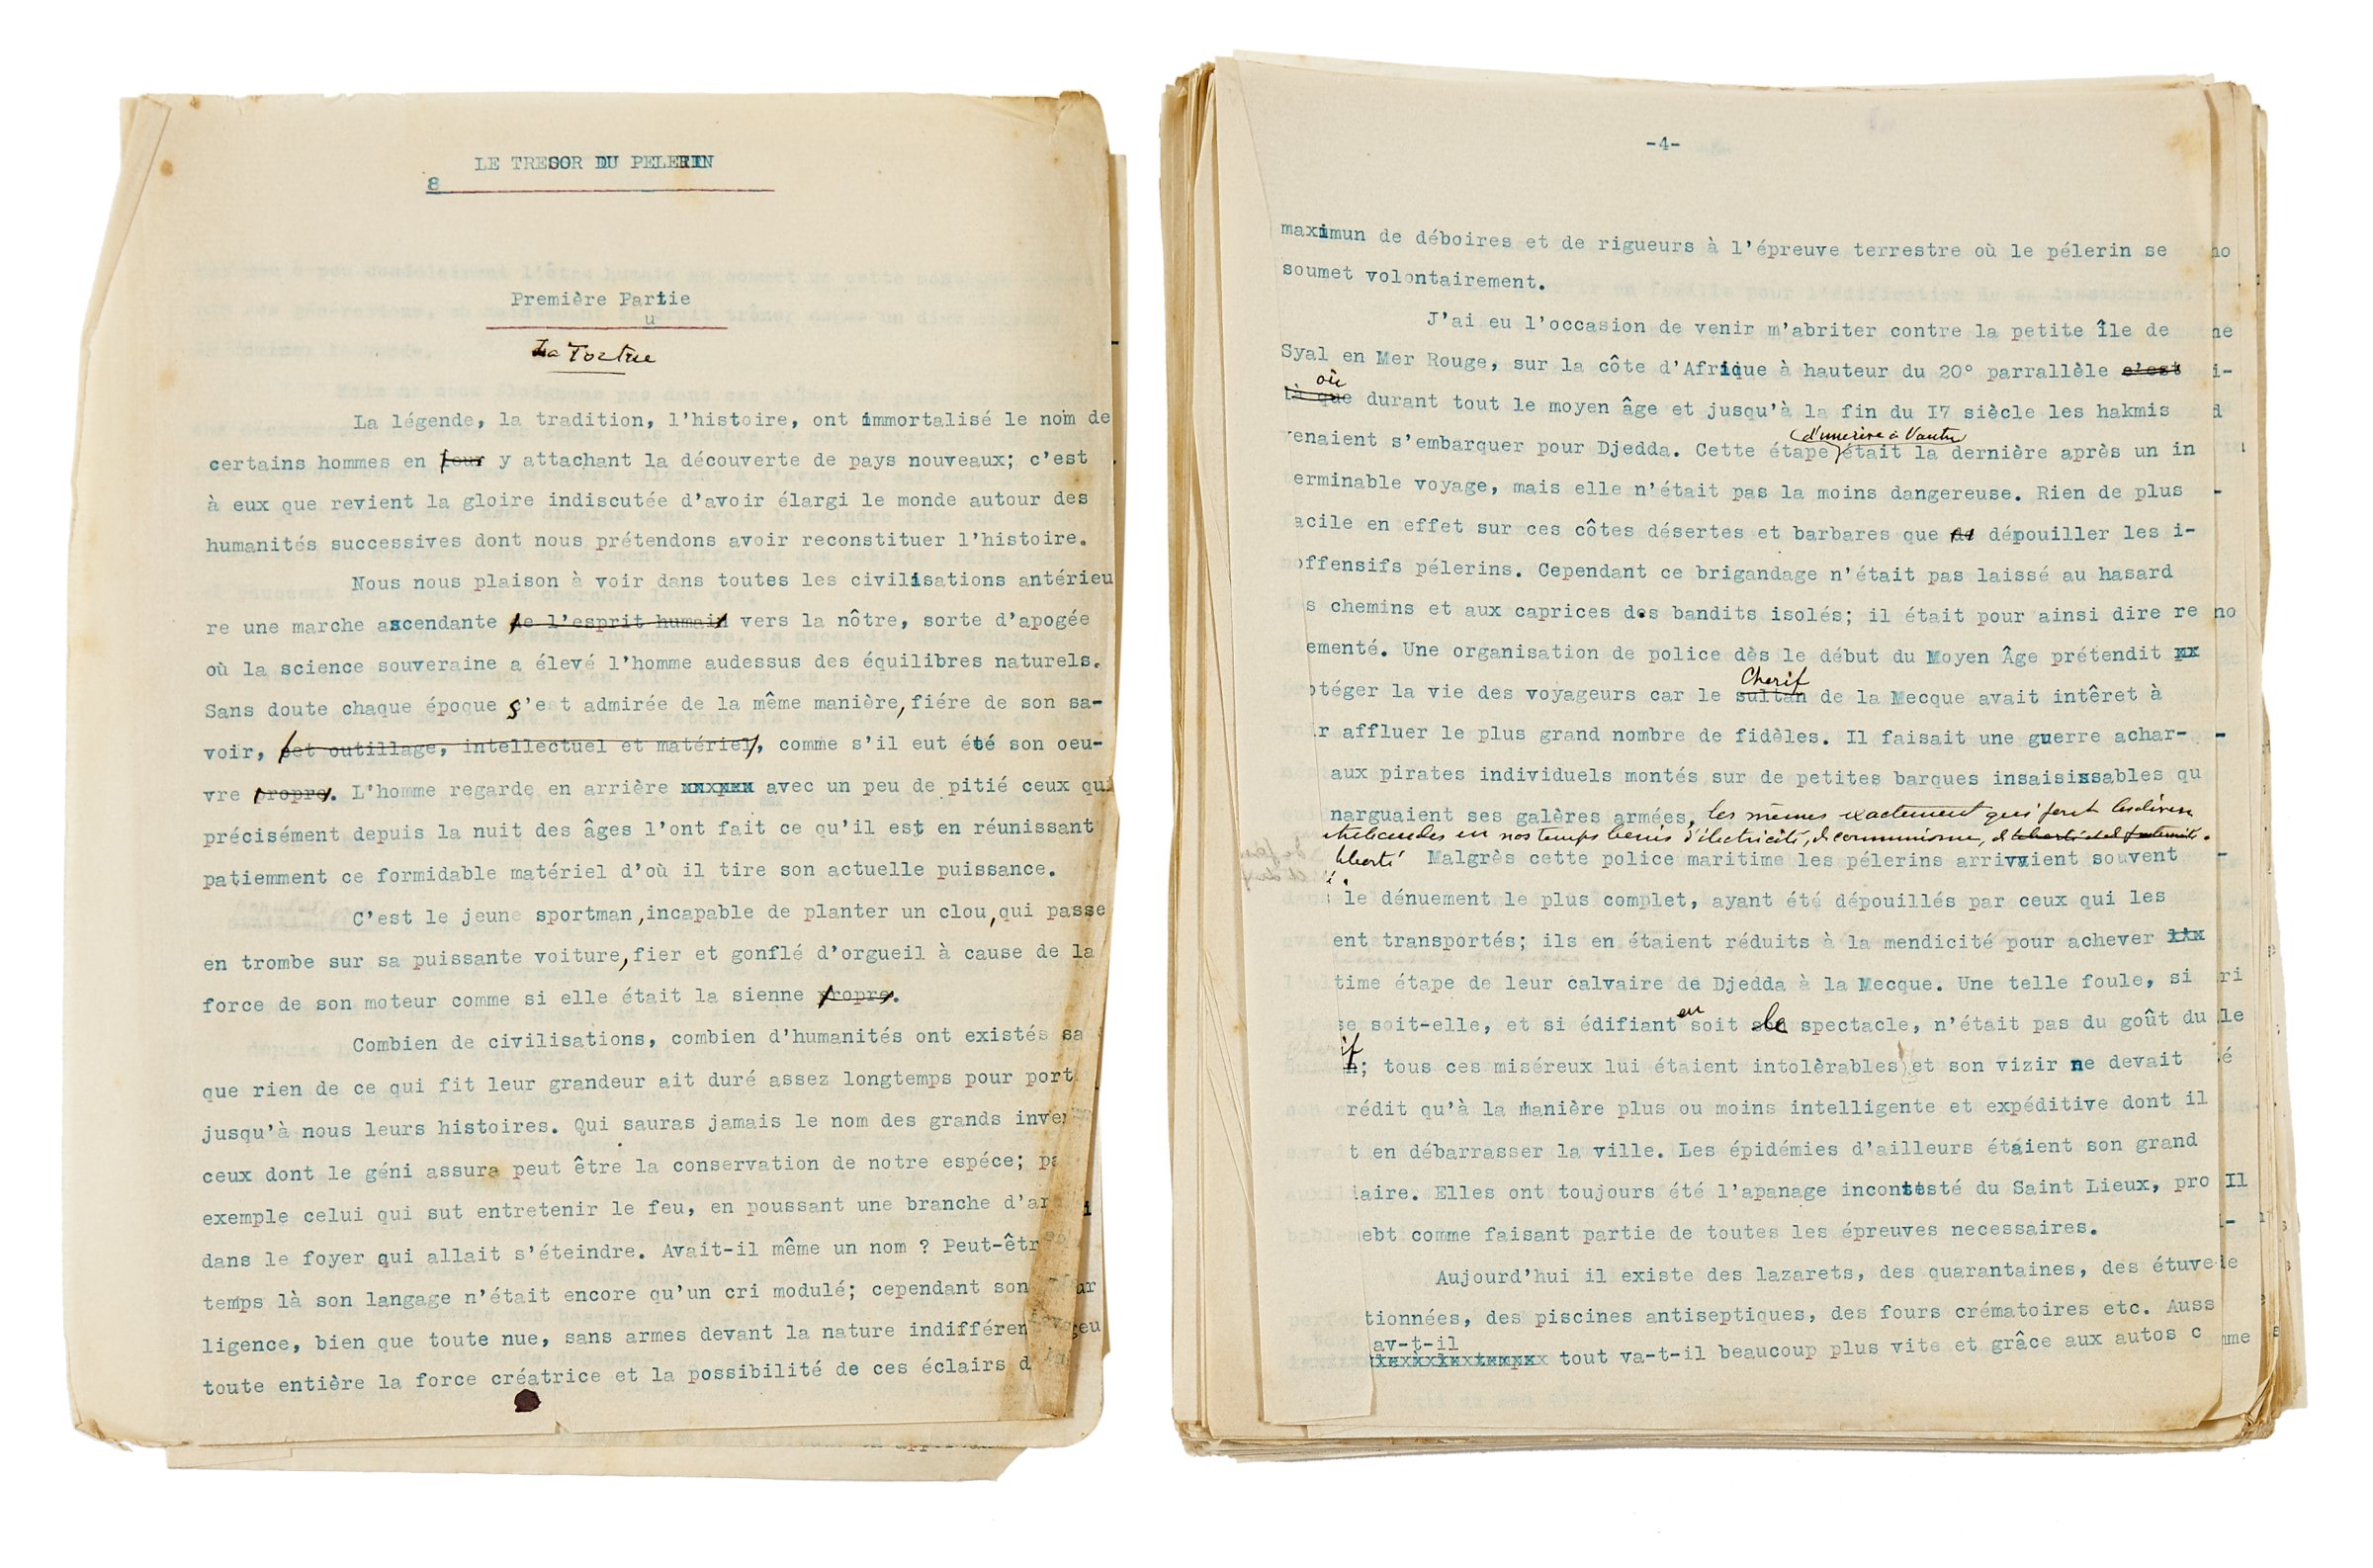 LE TRESOR DU PELERIN
8
Première Partie
u
La Tortue
La légende, la tradition, l'histoire, ont immortalisé le nom de
certains hommes en pour y attachant la découverte de pays nouveaux; c'est
à eux que revient la gloire indiscutée d'avoir élargi le monde autour des
humanités successives dont nous prétendons avoir reconstituer l'histoire.
Nous nous plaison à voir dans toutes les civilisations antérieu
re une marche ascendante de l'esprit humain vers la nôtre, sorte d'apogée
où la science souveraine a élevé l'homme audessus des équilibres naturels.
Sans doute chaque époque s'est admirée de la même manière, fiére de son sa-
voir, cet outillage, intellectuel et matériel, comme s'il eut été son oeu-
vre propre. L'homme regarde en arrière avec un peu de pitié ceux qui
précisément depuis la nuit des âges l'ont fait ce qu'il est en réunissant
patiemment ce formidable matériel d'où il tire son actuelle puissance.
C'est le jeune sportman, incapable de planter un clou, qui passe
en trombe sur sa puissante voiture, fier et gonflé d'orgueil à cause de la
force de son moteur comme si elle était la sienne propre.
Combien de civilisations, combien d'humanités ont existés sa
que rien de ce qui fit leur grandeur ait duré assez longtemps pour port
jusqu'à nous leurs histoires. Qui sauras jamais le nom des grands inve
ceux dont le géni assura peut être la conservation de notre espéce; pa
exemple celui qui sut entretenir le feu, en poussant une branche d'ar
dans le foyer qui allait s'éteindre. Avait-il même un nom ? Peut-êtr
temps là son langage n'était encore qu'un cri modulé; cependant son
ligence, bien que toute nue, sans armes devant la nature indifféren
toute entière la force créatrice et la possibilité de ces éclairs d
-4-
maximun de déboires et de rigueurs à l'épreuve terrestre où le pélerin se
soumet volontairement.
J'ai eu l'occasion de venir m'abriter contre la petite Île de
Syal en Mer Rouge, sur la côte d'Afrique à hauteur du 20° parrallèle c'est
où
là que durant tout le moyen âge et jusqu'à la fin du I7 siècle les hakmis
d'une rive à l'autre
venaient s'embarquer pour Djedda. Cette étape était la dernière après un in
erminable voyage, mais elle n'était pas la moins dangereuse. Rien de plus
acile en effet sur ces côtes désertes et barbares que de dépouiller les i-
offensifs pélerins. Cependant ce brigandage n'était pas laissé au hasard
s chemins et aux caprices des bandits isolés; il était pour ainsi dire re
ementé. Une organisation de police dès le début du Moyen Âge prétendit
Cherif
otéger la vie des voyageurs car le sultan de la Mecque avait intêret à
r affluer le plus grand nombre de fidèles. Il faisait une guerre achar-
aux pirates individuels montés sur de petites barques insaisissables qu
narguaient ses galères armées, les mêmes exactement qui font
en nos temps bénis d'électricité, de communisme, de liberté et de fraternité.
liberté Malgrès cette police maritime les pélerins arrivaient souvent
le dénuement le plus complet, ayant été dépouillés par ceux qui les
ent transportés; ils en étaient réduits à la mendicité pour achever
time étape de leur calvaire de Djedda à la Mecque. Une telle foule, si
en
se soit-elle, et si édifiant soit le spectacle, n'était pas du goût du
if
; tous ces miséreux lui étaient intolèrables et son vizir ne devait
rédit qu'à la manière plus ou moins intelligente et expéditive dont il
t en débarrasser la ville. Les épidémies d'ailleurs étaient son grand
iaire. Elles ont toujours été l'apanage incontesté du Saint Lieux, pro
ebt comme faisant partie de toutes les épreuves necessaires.
Aujourd'hui il existe des lazarets, des quarantaines, des étuve
tionnées, des piscines antiseptiques, des fours crématoires etc. Auss
av-t-il
tout va-t-il beaucoup plus vite et grâce aux autos c